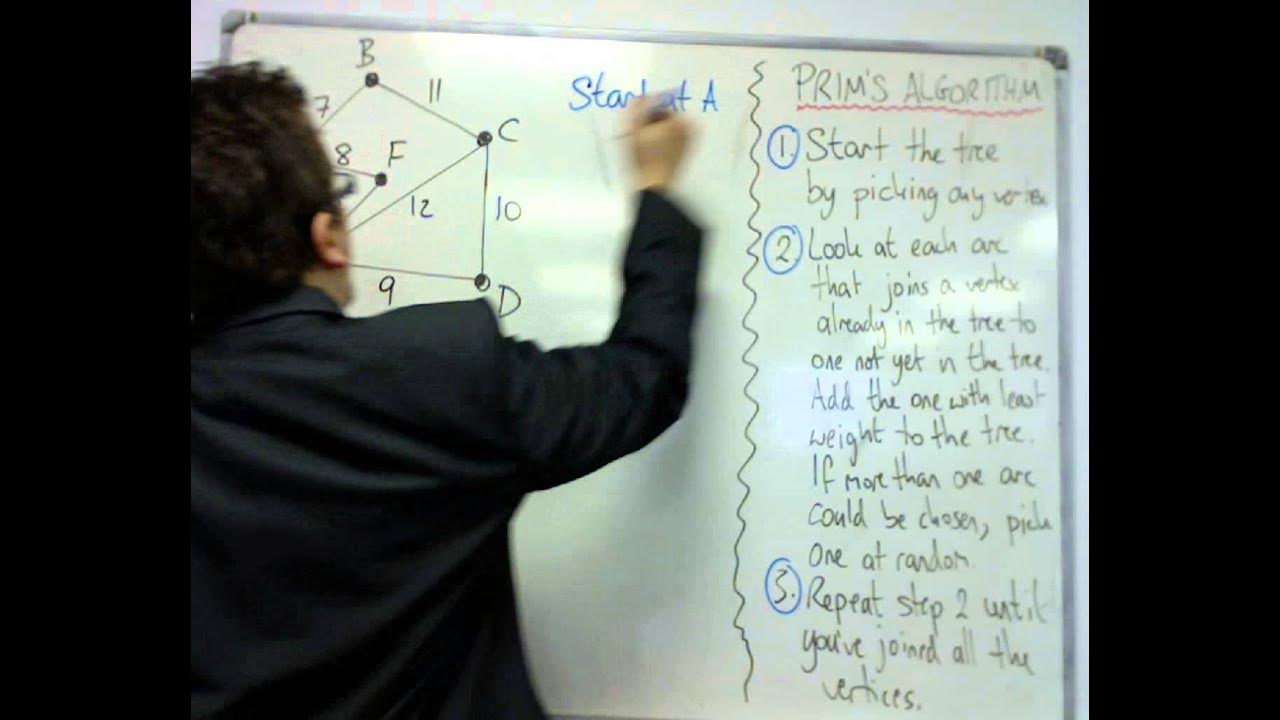 B
7
11
C
8
F
12
10
9
D
Start at A
PRIM'S ALGORITHM
1. Start the tree
by picking any vertex
2. Look at each arc
that joins a vertex
already in the tree to
one not yet in the tree.
Add the one with least
weight to the tree.
If more than one arc
could be chosen, pick
one at random.
3. Repeat step 2 until
you've joined all the
vertices.